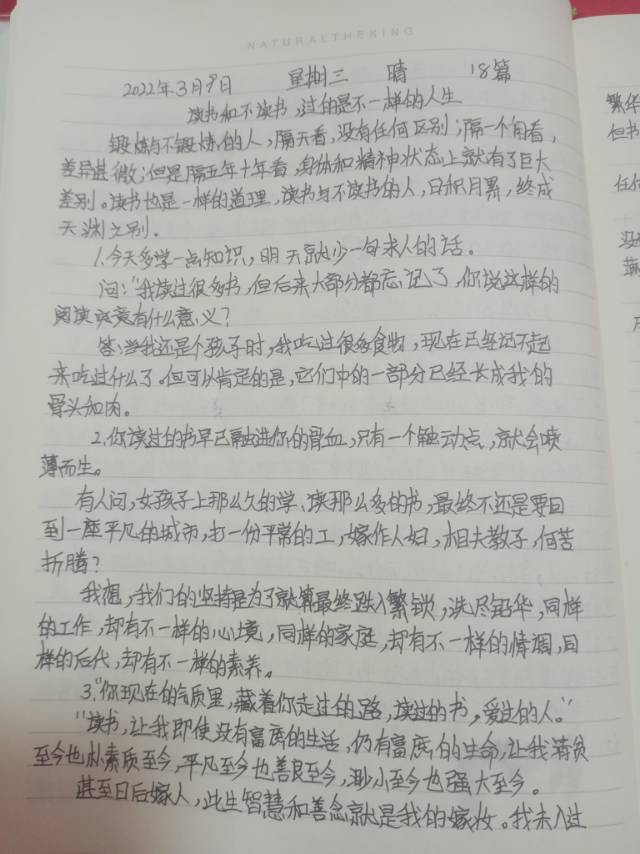 NATURALTHEKING
2022年3月9日 星期三 晴 18篇
读书和不读书,过的是不一样的人生
锻炼与不锻炼的人,隔天看,没有任何区别;隔一个月看,
差异甚微;但是隔五年十年看,身体和精神状态上就有了巨大
差别。读书也是一样的道理,读书与不读书的人,日积月累,终成
天渊之别。
1.今天多学一点知识,明天就少一句求人的话。
问:"我读过很多书,但后来大部分都忘记了,你说这样的
阅读究竟有什么意义?
答:当我还是个孩子时,我吃过很多食物,现在已经记不起
来吃过什么了。但可以肯定的是,它们中的一部分已经长成我的
骨头和肉。
2.你读过的书早已融进你的骨血,只有一个触动点,就会喷
薄而生。
有人问,女孩子上那么久的学、读那么多的书,最终不还是要回
到一座平凡的城市,打一份平常的工,嫁作人妇,相夫教子,何苦
折腾?
我想,我们的坚持是为了就算最终跌入繁锁,洗尽铅华,同样
的工作,却有不一样的心境,同样的家庭,却有不一样的情调,同
样的后代,却有不一样的素养。
3."你现在的气质里,藏着你走过的路,读过的书,爱过的人。"
"读书,让我即使没有富庶的生活,仍有富庶的生命,让我清贫
至今也朴素质至今,平凡至今也善良至今,渺小至今也强大至今。
甚至日后嫁人,此生智慧和善念就是我的嫁妆。我未入过
繁华
但书
任何